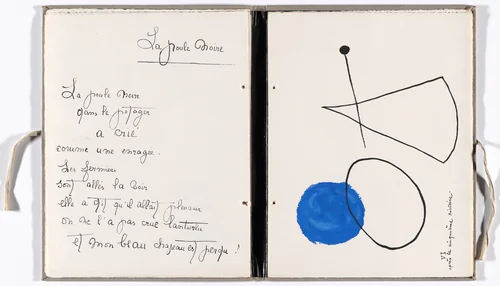 La poule noire
La poule noire
dans le potager
a crié
comme une enragée.
Les fermiers
sont allés la voir
elle a dit qu'il allait pleuvoir
on ne l'a pas crue
et mon beau chapeau est perdu !